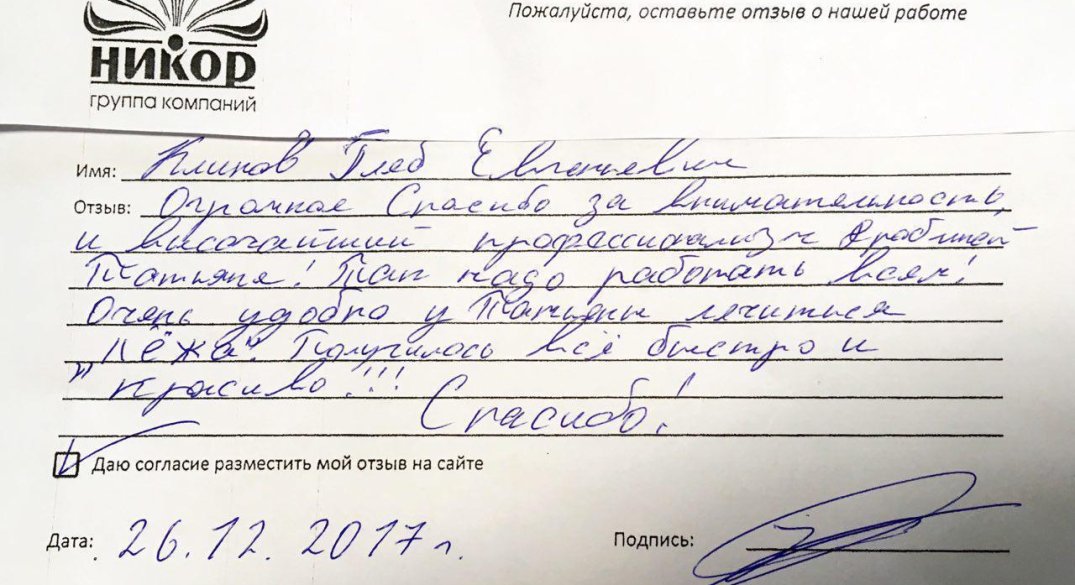 Пожалуйста, оставьте отзыв о нашей работе
НИКОР
группа компаний
Имя: Климов Глеб Евгеньевич
Отзыв: Огромное Спасибо за внимательность
и высочайший профессионализм
Татьяне! Так надо работать всем!
Очень удобно у Татьяны лечиться
"лёжа". Получилось всё быстро и
"красиво!!!
Спасибо!
Даю согласие разместить мой отзыв на сайте
Дата: 26.12.2017г.
Подпись: